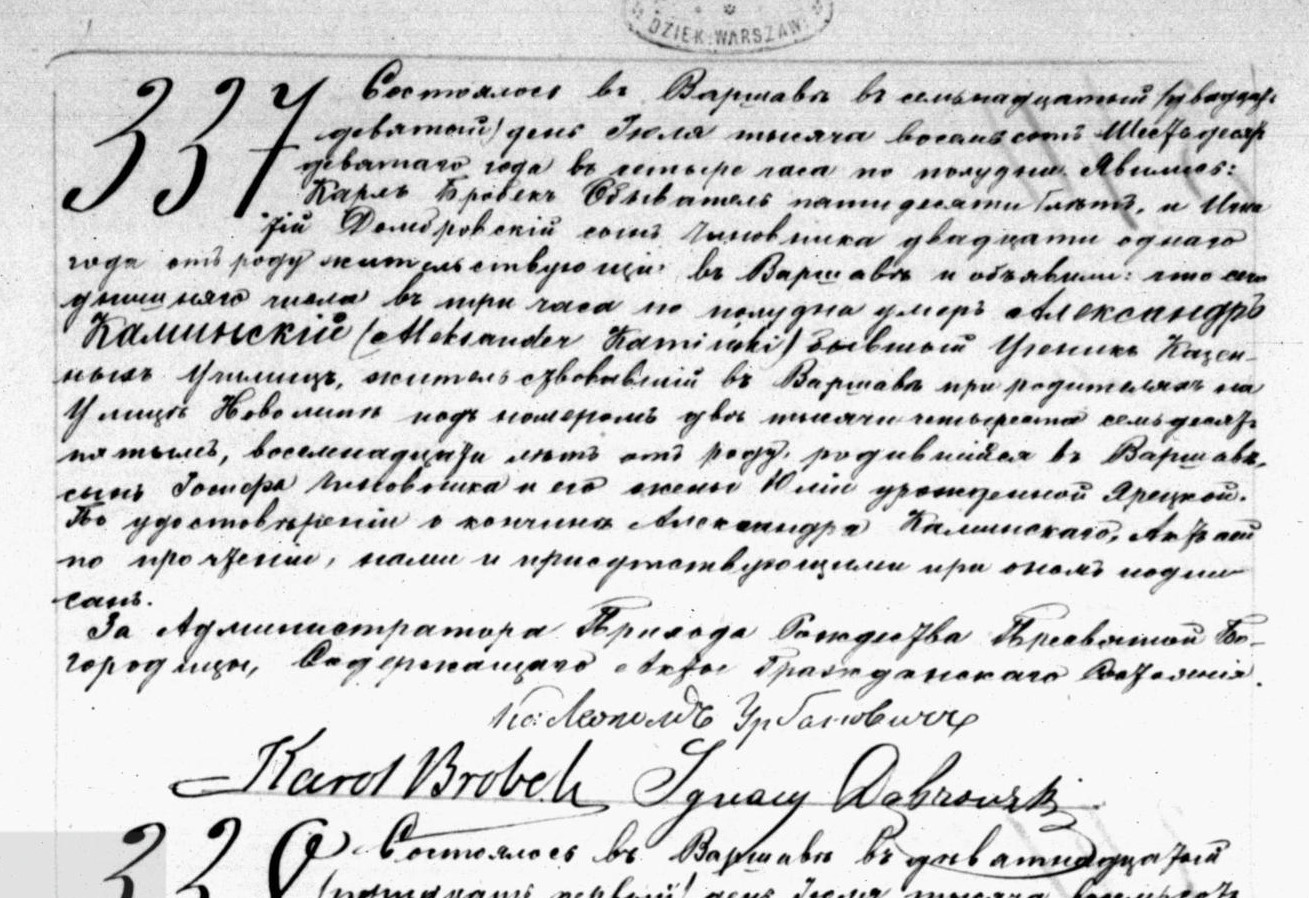 DZIEK. WARSZAW.
337 Состоялось въ Варшавѣ въ семьнадцатый /двадцать
девятый/ день Іюля тысяча восемь сотъ Шестьдесятъ
девятаго года въ четыре часа по полудни. Явились:
Карлъ Бробекъ Обыватель пятидесяти лѣтъ, и Игна
цій Домбровскій сынъ Чиновника двадцати одного
года отъ роду жительствующіи въ Варшавѣ и объявили: что сего
дняшняго числа въ три часа по полудни умеръ Александръ
Каминскій (Aleksander Kamiński) бывшій Ученикъ Казен-
ныхъ Училищъ, жительствовавшій въ Варшавѣ при родителяхъ на
Улицѣ Новолипѣ подъ номеромъ двѣ тысячи четыреста семьдесятъ
пятымъ, восемнадцати лѣтъ отъ роду, родившійся въ Варшавѣ,
сынъ Іосифа Чиновника и его жены Юліи урожденнойЯрецкой.
По удостовѣреніи о кончинѣ Александра Каминскаго, Актъ сей
по прочтеніи, нами и присутствующими при ономъ подпи
санъ.
За Администратора Прихода Рождества Пресвятой Бо-
городицы, Содержащаго Акты Гражданскаго Состоянія.
Кс: Леопольдъ Урбановичъ
Karol Brobek Ignacy Dąbrowski
338 Состоялось въ Варшавѣ въ девятнадцатый
первый/ день Іюля тысяча восемьсотъ